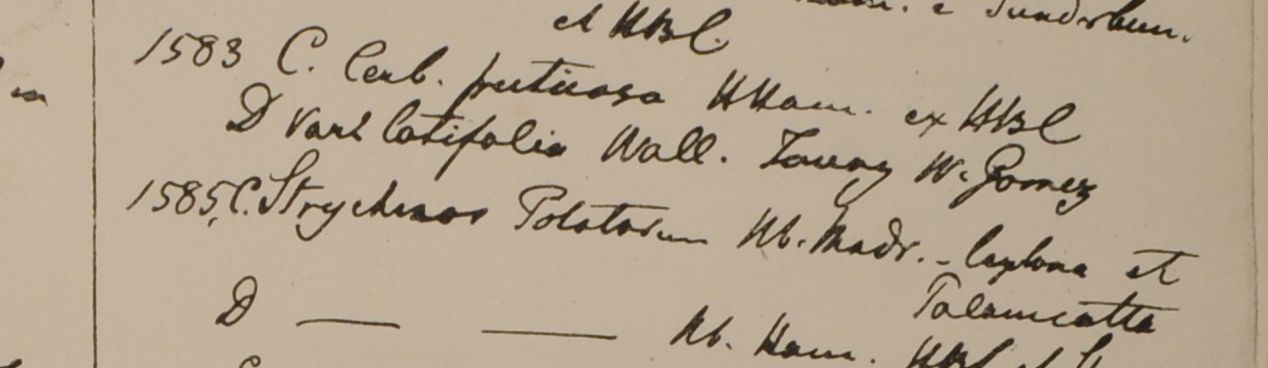 e Sunderbun.
et HBC
1583 C. Cerb. fruticosa HHam. ex HBC
D Var latifolia Wall. Tavoy W. Gomez
1585, C. Strychnos Potatorum Hb. Madr. - Ceylona et
Palamcatta
D — — Hb. Ham. HBC et